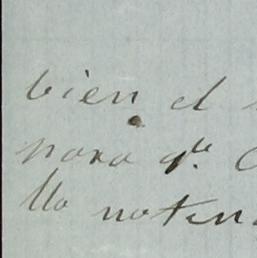 bien el
para qe
lla noten